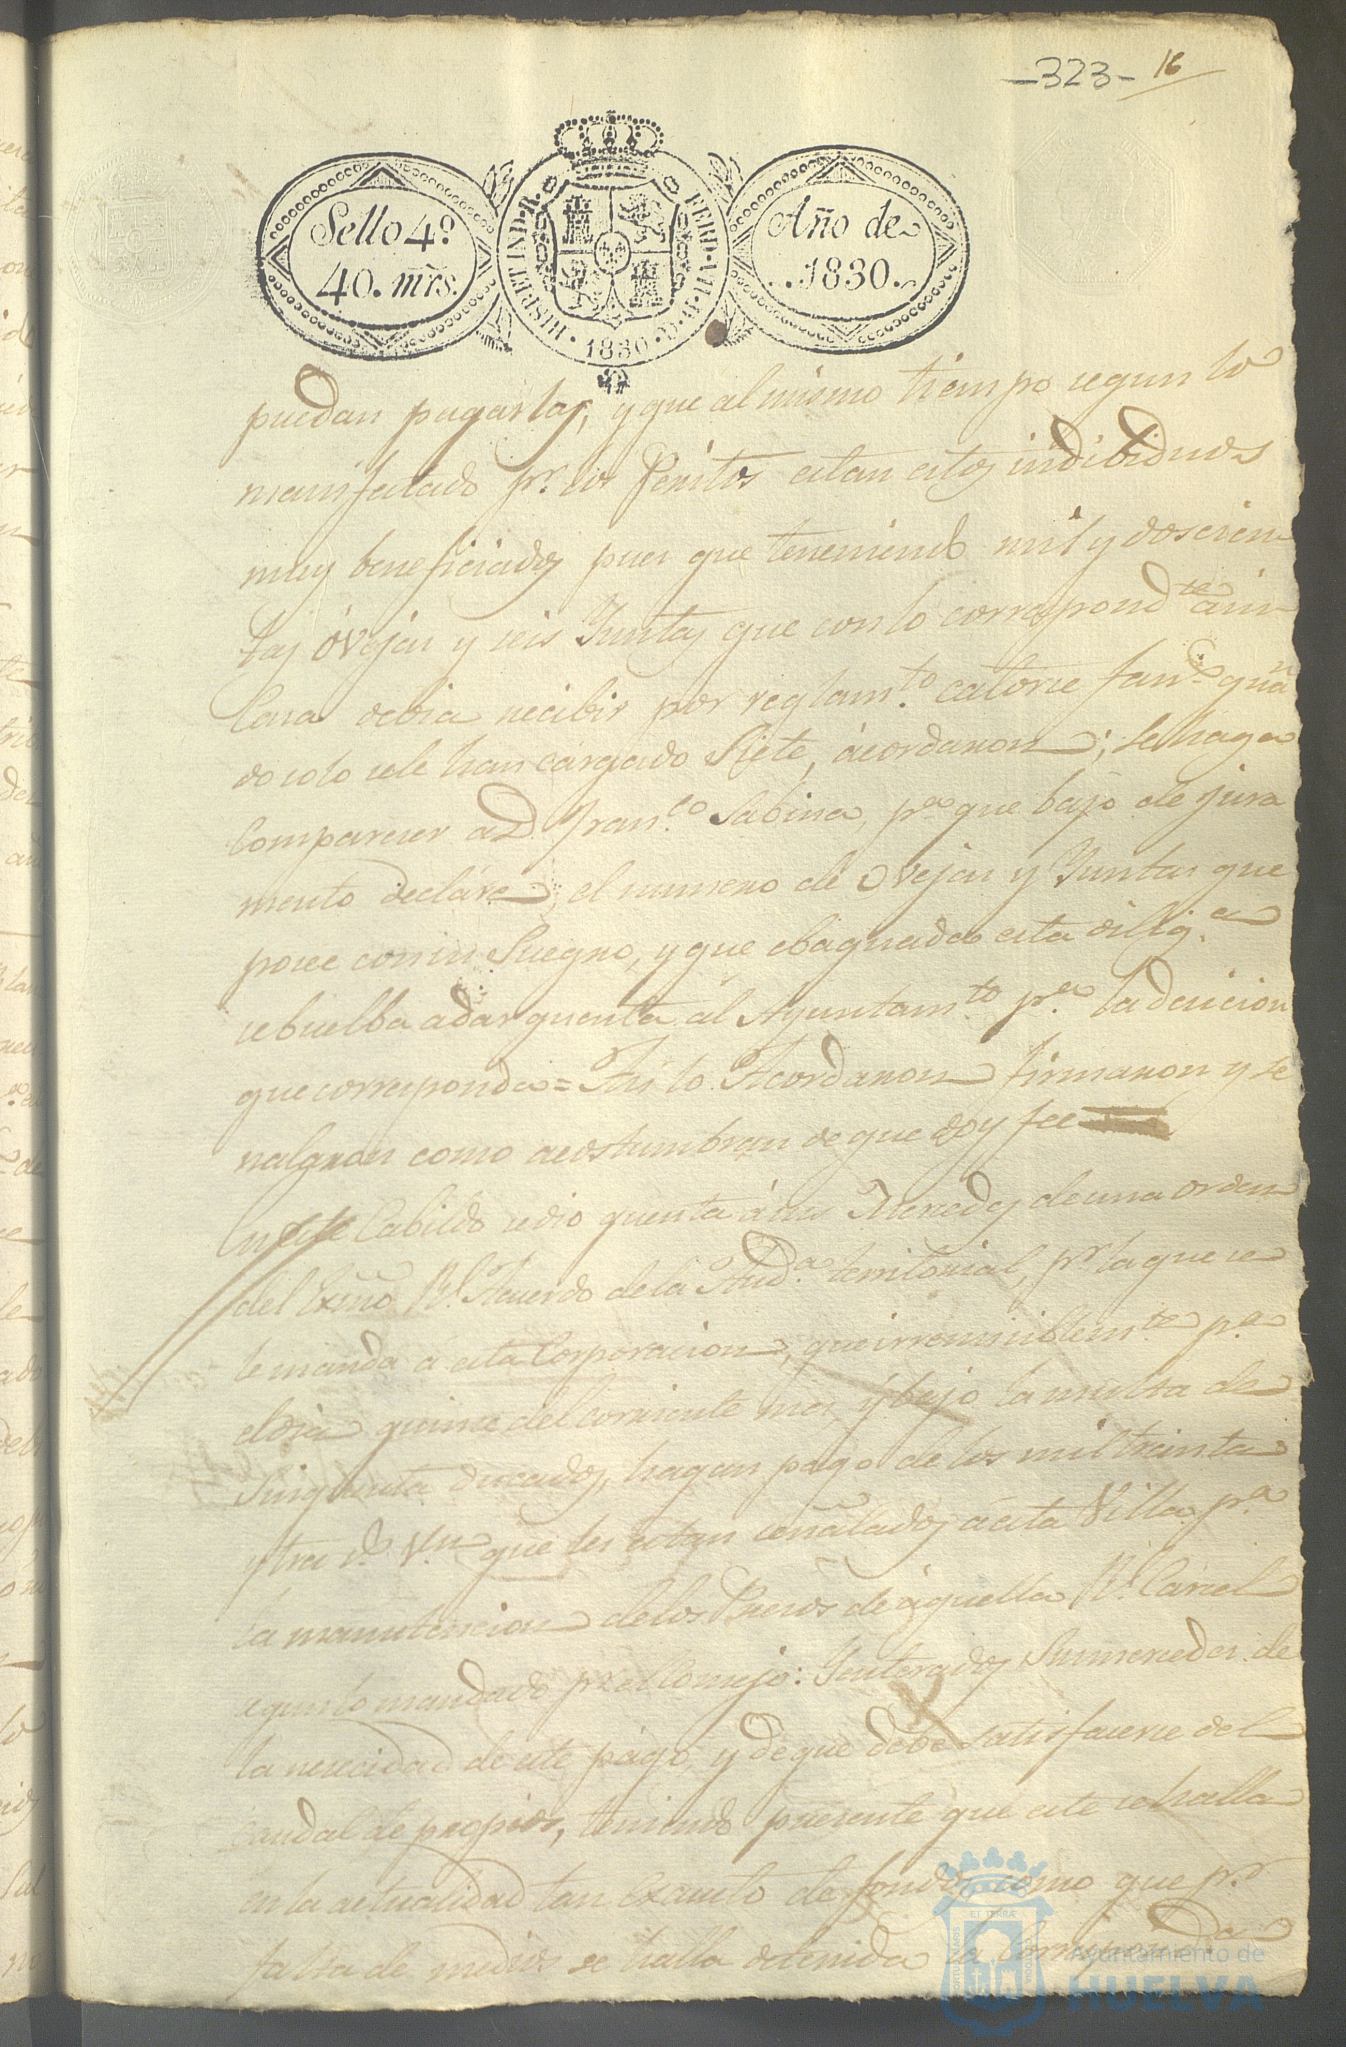 -323- 16
Sello 4º
40. mrs.
HISP. ET IND. R. FERD. VII. D. G. 1830
Año de
1830.
puedan pagarlas, y que al mismo tiempo segun lo
manifestado pr. los Peritos estan estos indibiduos
muy beneficiados pues que teneniendo mil y doscien
tas óvejas y seis Yuntas que con lo correspond.te
Casa debia recibir por reglam.to catorce fan.s quan
do solo sele han cargado Siete, ácordaron; se haga
Comparecer a D. Fran.co Sabina, pa. que bajo de jura
mento declare el numero de Ovejas y Yuntas que
posee con su Suegro, y que ebaquada esta dilig.a
sebuelba adar quenta al Ayuntam.to pa. la decision
que corresponda = Asi lo Acordaron firmaron y se
ñalaron como acostumbran de que doy fee
n este Cabildo sedio quenta á sus Mercedes de una orden
del Exmo. Rl. Acuerdo de la Aud.a territorial, pr. la que se
le manda á esta Corporacion, que irremisiblem.te pa.
el dia quince del corriente mes, y bajo la multa de
Sinquenta ducados, hagan pago de los mil treinta
y tres rs. Vn. que les estan señalados á esta Villa pa.
la manutencion delos Presos de aquella Rl. Carcel
segun lo mandado pr. el Consejo: Ynterados Sus mercedes de
la necesidad de este pago, y de que debe satisfacerse del
Caudal de propios, teniendo presente que este se halla
en la actualidad tan exausto de fondos, como que pr.
falta de medios se halla detenida la Correspond.a
Ayuntamiento de
HUELVA